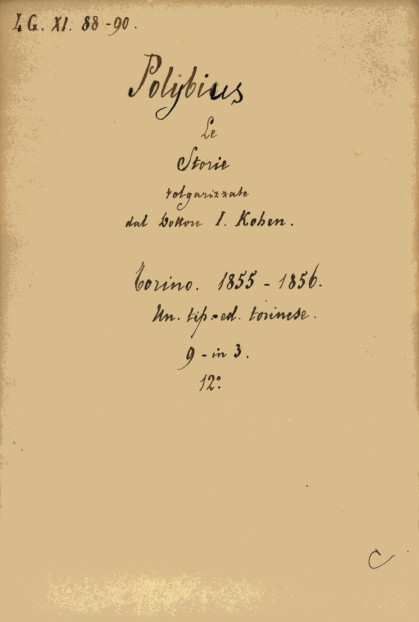 4 G. XI. 88-90.
Polybius
Le
Storie
volgarizzate
dal Dottore I. Kohen.
Torino. 1855-1856.
Un. tip.-ed. torinese.
9-in 3.
12°
C